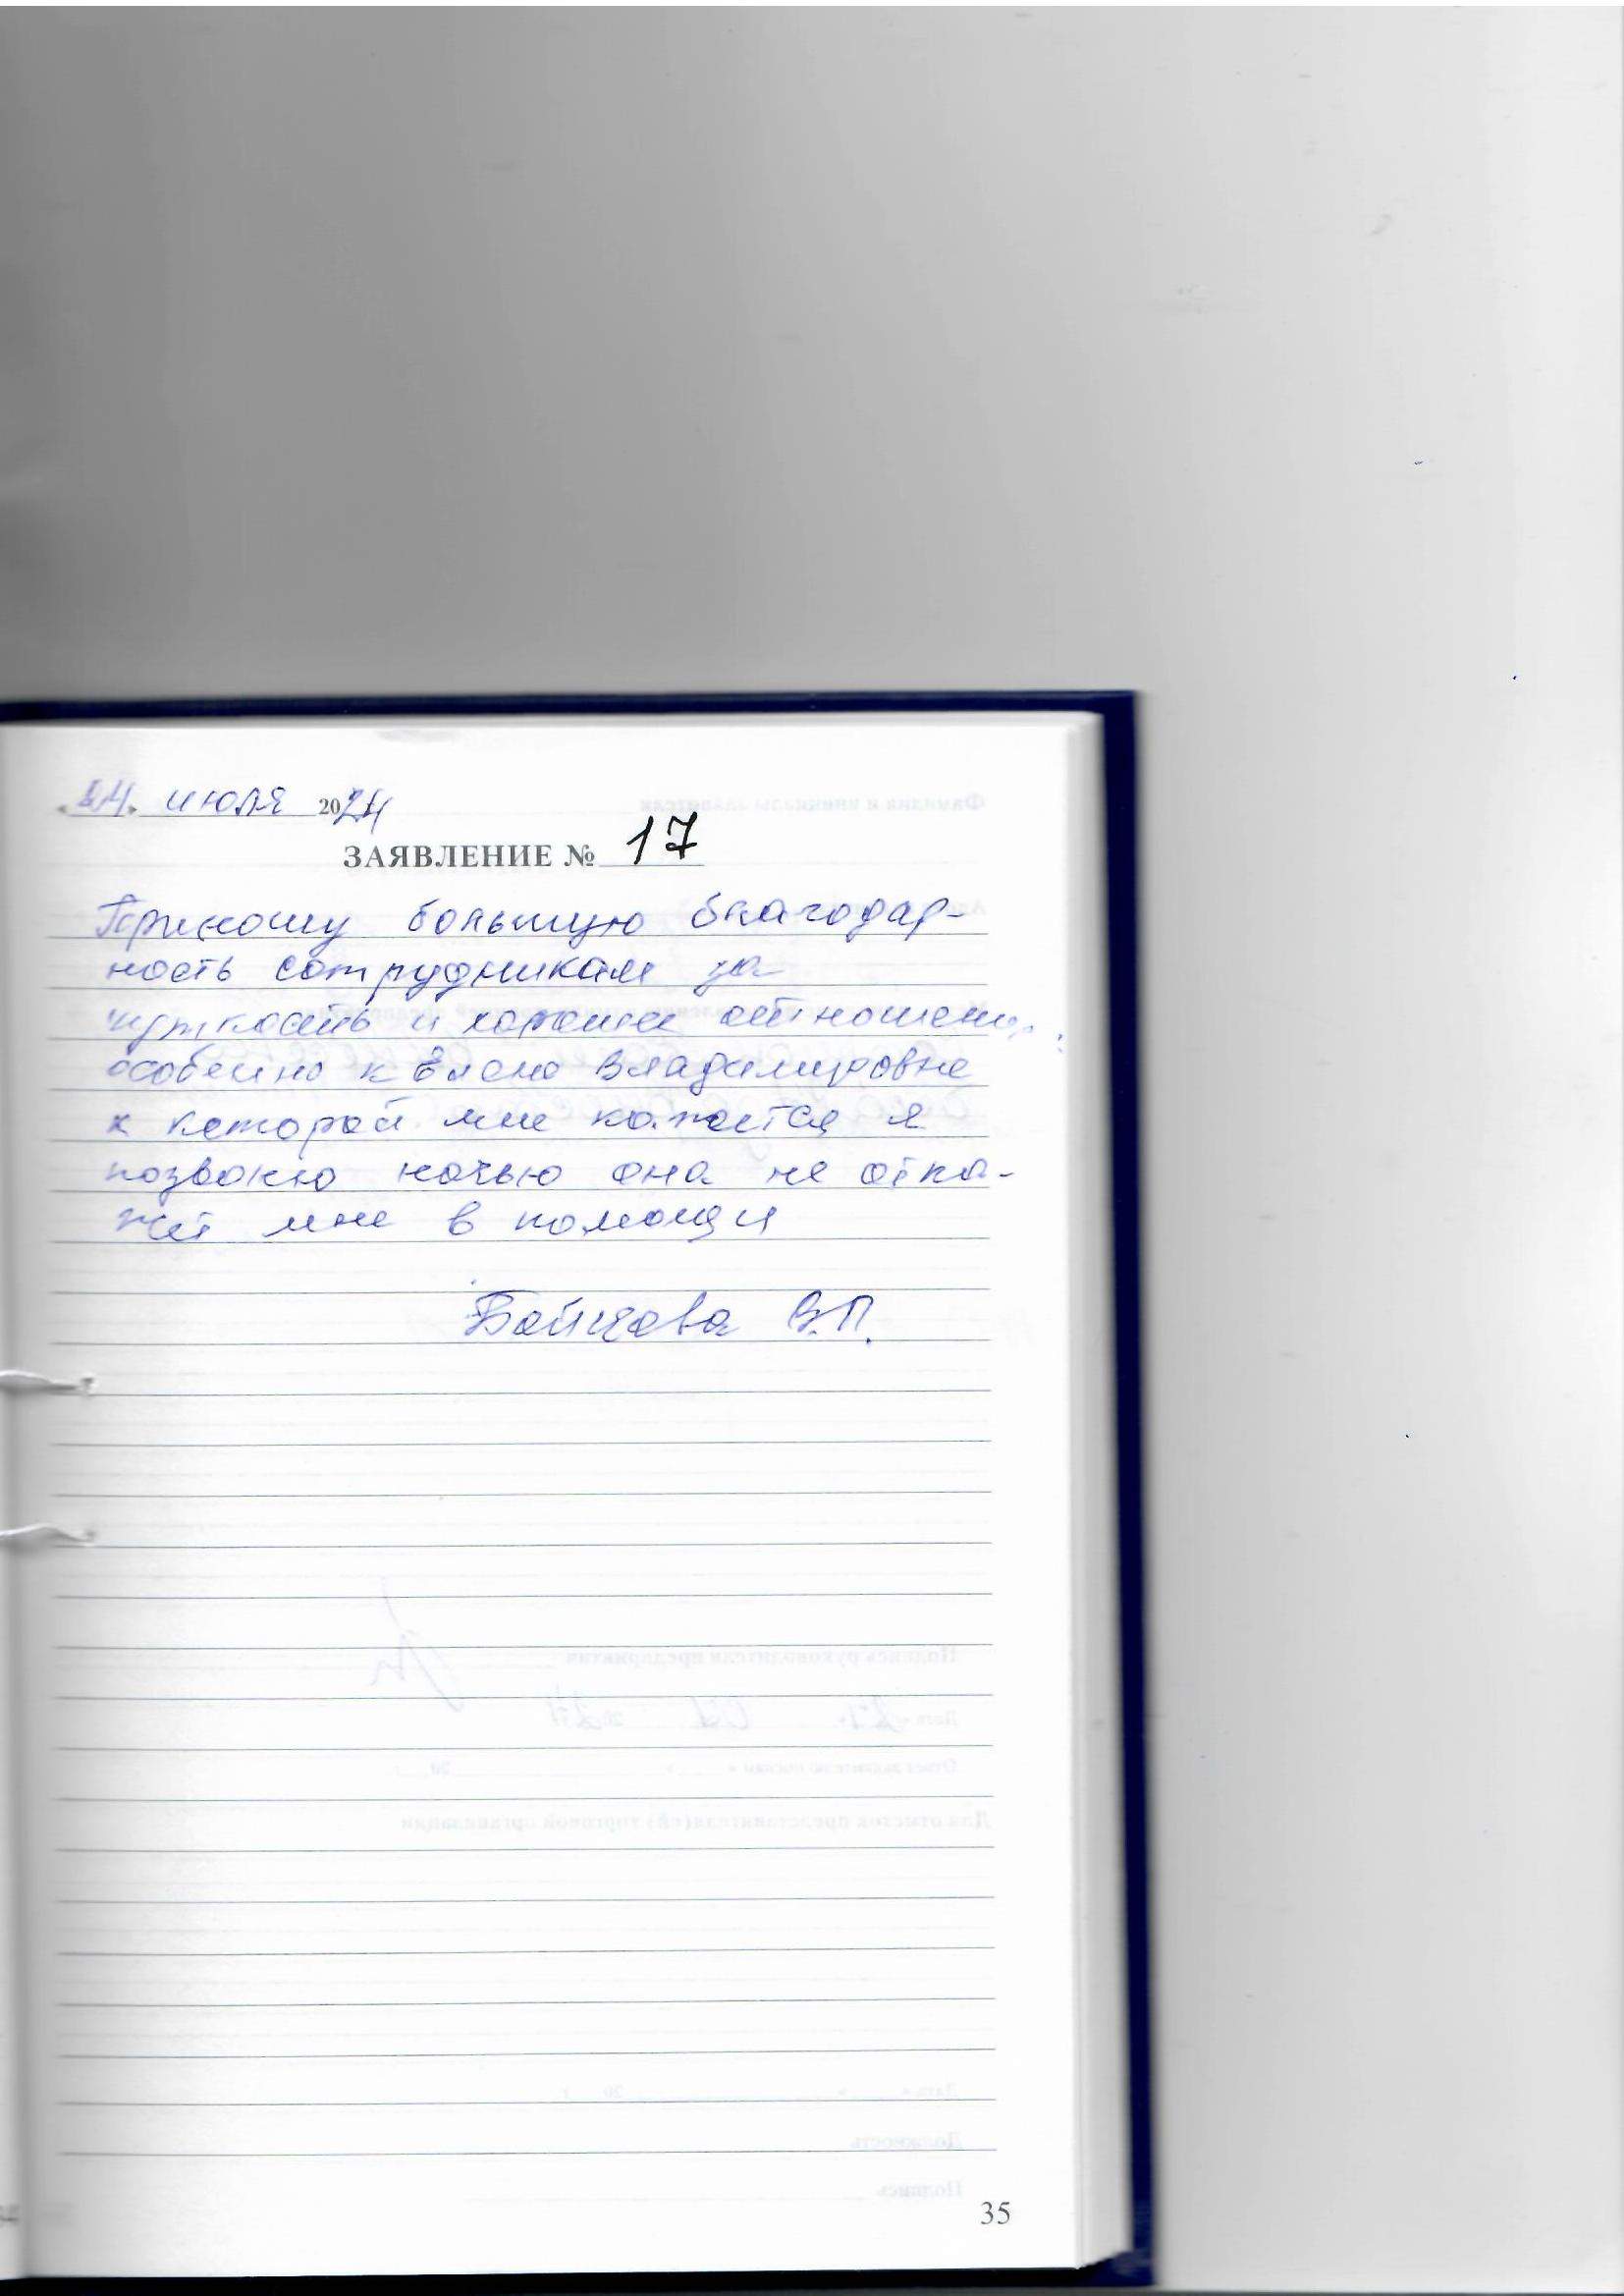 «24» июля 2024
ЗАЯВЛЕНИЕ № 17
Приношу большую благодар-
ность сотрудникам за
чуткость и хорошее отношение,
особенно к Елене Владимировне
к которой мне кажется я
позвоню ночью она не отка-
жет мне в помощи
Бойцова В.П.
35